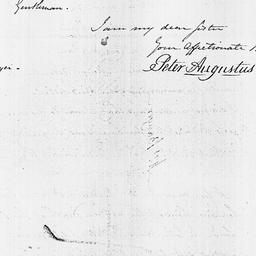 Gentleman.
I am my dear Sister
Your Affectionate
Peter Augustus